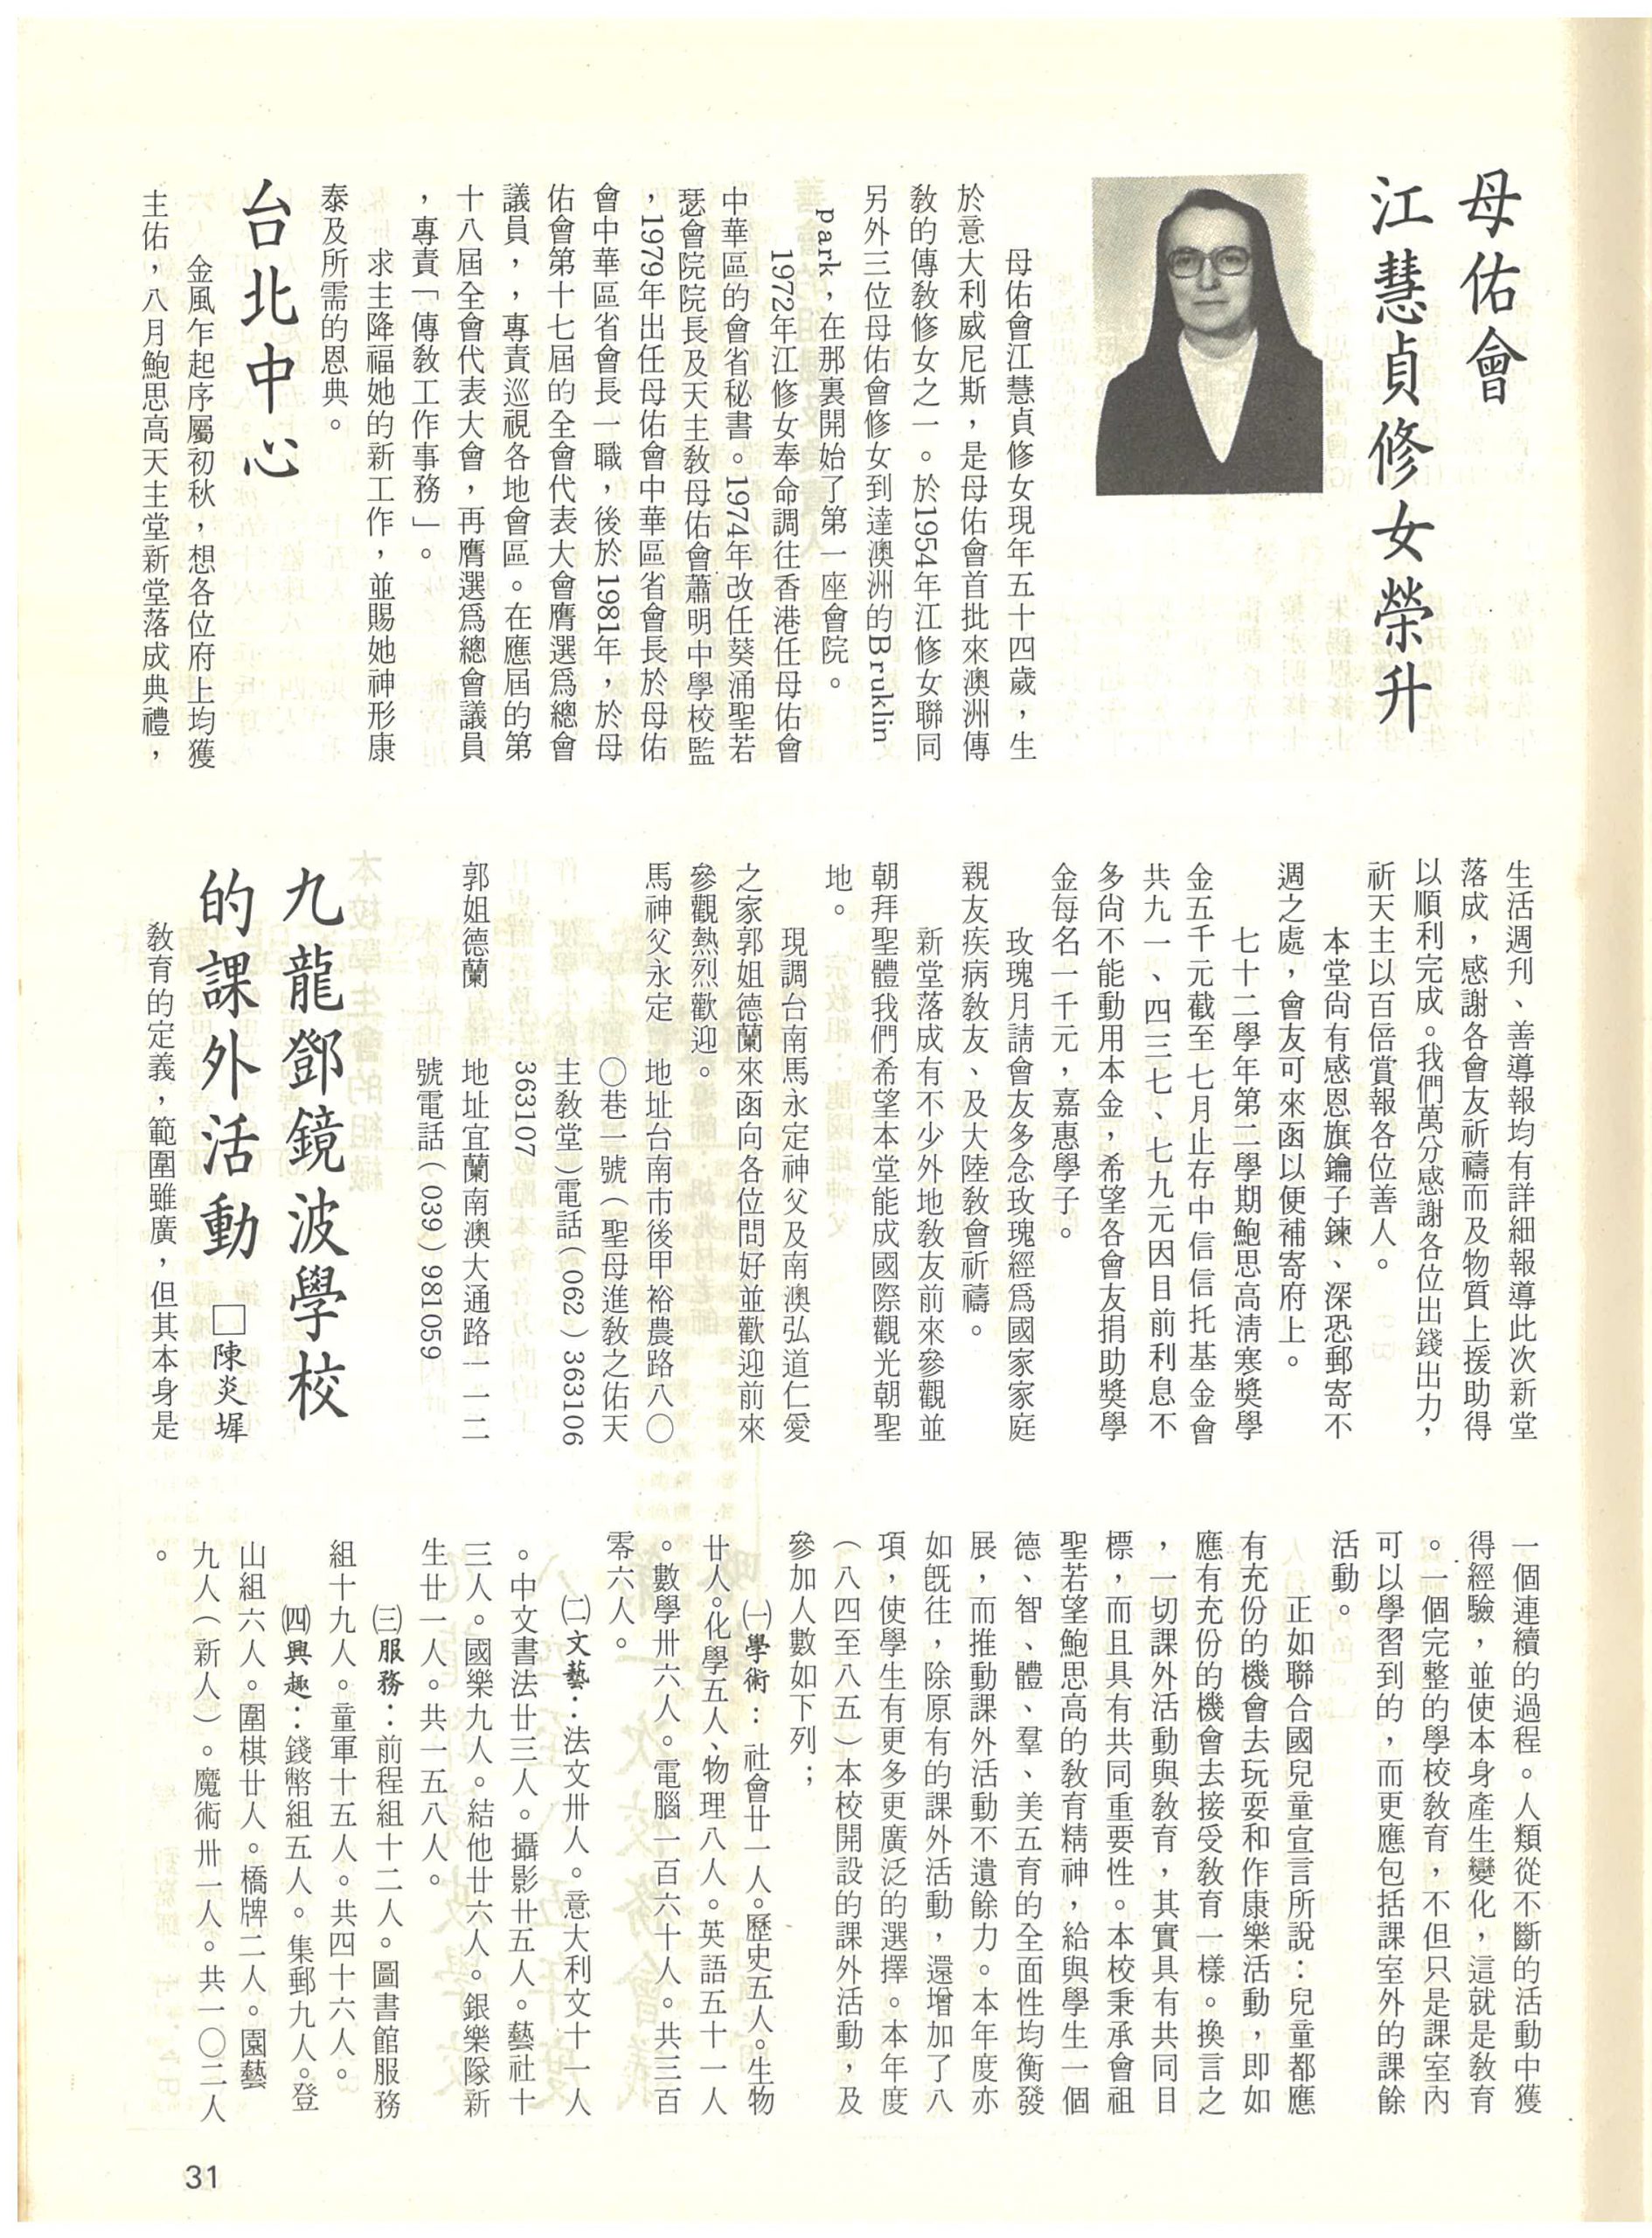 母佑會
江慧貞修女榮升
母佑會江慧貞修女現年五十四歲，生
於意大利威尼斯，是母佑會首批來澳洲傳
教的傳教修女之一。於1954年江修女聯同
另外三位母佑會修女到達澳洲的Bruklin
park，在那裏開始了第一座會院。
1972年江修女奉命調往香港任母佑會
中華區的會省秘書。1974年改任葵涌聖若
瑟會院院長及天主教母佑會蕭明中學校監
，1979年出任母佑會中華區省會長於母佑
會中華區省會長一職，後於1981年，於母
佑會第十七屆的全會代表大會膺選爲總會
議員，，專責巡視各地會區。在應屆的第
十八屆全會代表大會，再膺選爲總會議員
，專責「傳教工作事務」。
求主降福她的新工作，並賜她神形康
泰及所需的恩典。
台北中心
金風乍起序屬初秋，想各位府上均獲
主佑，八月鮑思高天主堂新堂落成典禮，
生活週刊、善導報均有詳細報導此次新堂
落成，感謝各會友祈禱而及物質上援助得
以順利完成。我們萬分感謝各位出錢出力，
祈天主以百倍賞報各位善人。
本堂尚有感恩旗鑰子鍊、深恐郵寄不
週之處，會友可來函以便補寄府上。
七十二學年第二學期鮑思高清寒獎學
金五千元截至七月止存中信信托基金會
共九一、四三七、七九元因目前利息不
多尚不能動用本金，希望各會友捐助獎學
金每名一千元，嘉惠學子。
玫瑰月請會友多念玫瑰經爲國家家庭
親友疾病教友、及大陸教會祈禱。
新堂落成有不少外地教友前來參觀並
朝拜聖體我們希望本堂能成國際觀光朝聖
地。
現調台南馬永定神父及南澳弘道仁愛
之家郭姐德蘭來函向各位問好並歡迎前來
參觀熱烈歡迎。
馬神父永定　地址台南市後甲裕農路八〇
〇巷一號（聖母進教之佑天
主教堂）電話（062）363106
363107
郭姐德蘭　地址宜蘭南澳大通路一一二
號電話（039）981059
九龍鄧鏡波學校
的課外活動　□陳炎墀
教育的定義，範圍雖廣，但其本身是
一個連續的過程。人類從不斷的活動中獲
得經驗，並使本身產生變化，這就是教育
。一個完整的學校教育，不但只是課室內
可以學習到的，而更應包括課室外的課餘
活動。
正如聯合國兒童宣言所說：兒童都應
有充份的機會去玩耍和作康樂活動，即如
應有充份的機會去接受教育一樣。換言之
，一切課外活動與教育，其實具有共同目
標，而且具有共同重要性。本校秉承會祖
聖若望鮑思高的教育精神，給與學生一個
德、智、體、羣、美五育的全面性均衡發
展，而推動課外活動不遺餘力。本年度亦
如旣往，除原有的課外活動，還增加了八
項，使學生有更多更廣泛的選擇。本年度
（八四至八五）本校開設的課外活動，及
參加人數如下列；
㈠學術：社會廿一人。歷史五人。生物
廿人。化學五人、物理八人。英語五十一人
。數學卅六人。電腦一百六十人。共三百
零六人。
㈡文藝：法文卅人。意大利文十一人
。中文書法廿三人。攝影卅五人。藝社十
三人。國樂九人。結他廿六人。銀樂隊新
生廿一人。共一五八人。
㈢服務：前程組十二人。圖書館服務
組十九人。童軍十五人。共四十六人。
㈣興趣：錢幣組五人。集郵九人。登
山組六人。圍棋廿人。橋牌二人。園藝
九人（新人）。魔術卅一人。共一〇二人
。
31